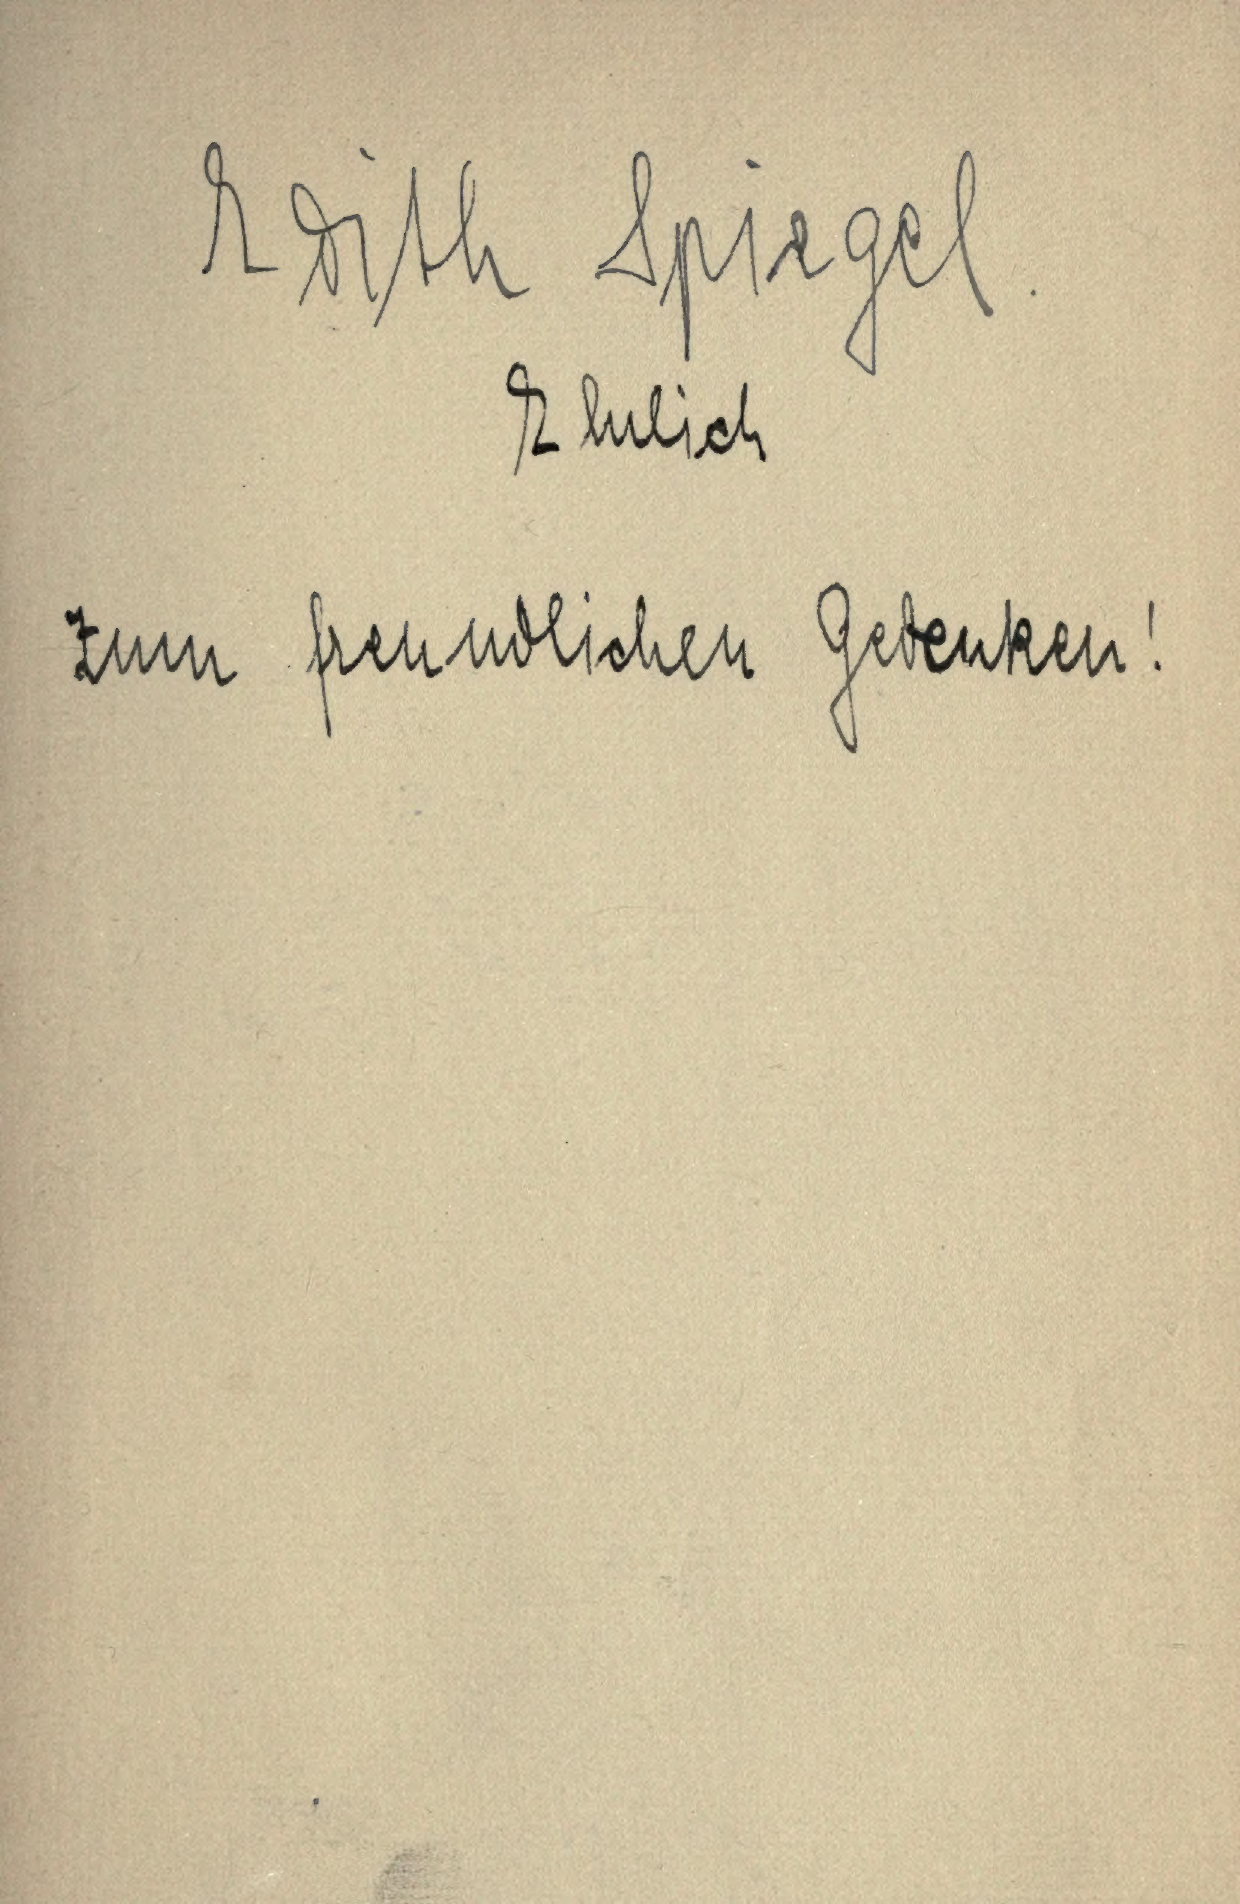 Edith Spiegel.
Ehrlich
Zum freundlichen Gedenken!